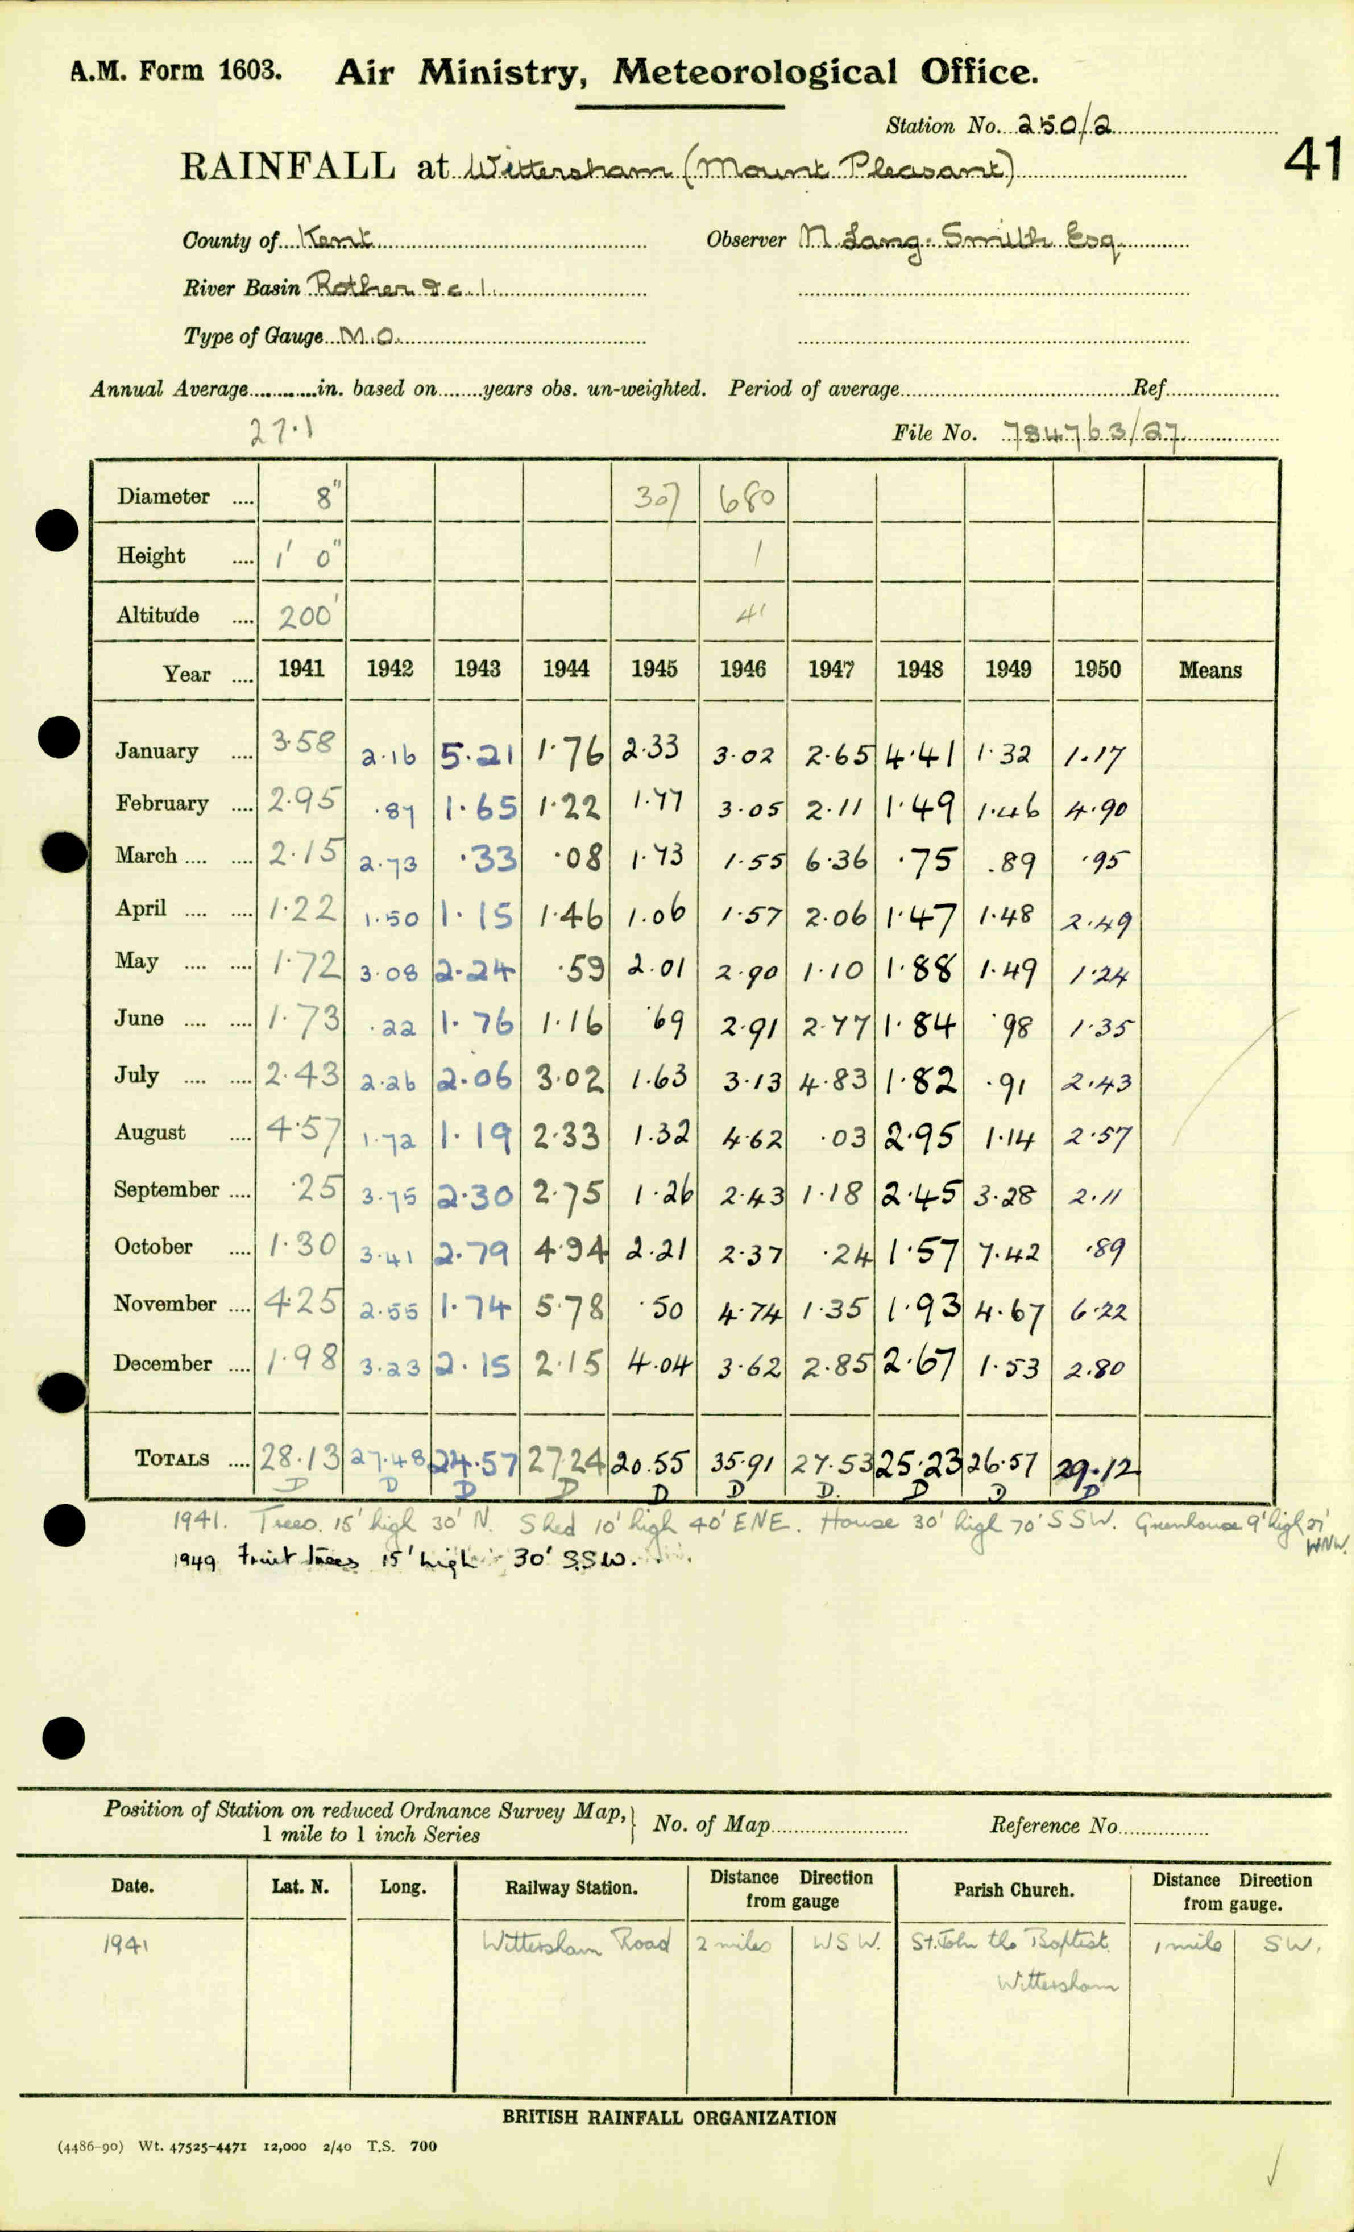 A.M. Form 1603. Air Ministry, Meteorological Office.
Station No. 250/2
41
RAINFALL at Wittersham (Mount Pleasant)
County of Kent Observer N Lang-Smith Esq
River Basin Rother &c. 1.
Type of Gauge M.O.
Annual Average............in. based on........years obs. un-weighted. Period of average........Ref........
27.1 File No. 784763/27
Diameter .... 8" 307 680
Height .... 1' 0" 1
Altitude .... 200' 41
Year .... 1941 1942 1943 1944 1945 1946 1947 1948 1949 1950 Means
January .... 3.58 2.16 5.21 1.76 2.33 3.02 2.65 4.41 1.32 1.17
February .... 2.95 .87 1.65 1.22 1.77 3.05 2.11 1.49 1.46 4.90
March .... .... 2.15 2.73 .33 .08 1.73 1.55 6.36 .75 .89 .95
April .... .... 1.22 1.50 1.15 1.46 1.06 1.57 2.06 1.47 1.48 2.49
May .... .... 1.72 3.08 2.24 .59 2.01 2.90 1.10 1.88 1.49 1.24
June .... .... 1.73 .22 1.76 1.16 .69 2.91 2.77 1.84 .98 1.35
July .... .... 2.43 2.26 2.06 3.02 1.63 3.13 4.83 1.82 .91 2.43
August .... 4.57 1.72 1.19 2.33 1.32 4.62 .03 2.95 1.14 2.57
September .... .25 3.75 2.30 2.75 1.26 2.43 1.18 2.45 3.28 2.11
October .... 1.30 3.41 2.79 4.94 2.21 2.37 .24 1.57 7.42 .89
November .... 4.25 2.55 1.74 5.78 .50 4.74 1.35 1.93 4.67 6.22
December .... 1.98 3.23 2.15 2.15 4.04 3.62 2.85 2.67 1.53 2.80
TOTALS .... 28.13 27.48 24.57 27.24 20.55 35.91 27.53 25.23 26.57 29.12
D D D D D D D. D D D
1941. Trees. 15' high 30' N. Shed 10' high 40' ENE. House 30' high 70' SSW. Greenhouse 9' high 27'
WNW.
1949 Fruit trees 15' high 30' S.S.W.
Position of Station on reduced Ordnance Survey Map,
1 mile to 1 inch Series
No. of Map........ Reference No........
Date. Lat. N. Long. Railway Station. Distance Direction from gauge Parish Church. Distance Direction from gauge.
1941 Wittersham Road 2 miles WSW. St. John the Baptist. 1 mile SW.
Wittersham
BRITISH RAINFALL ORGANIZATION
(4486-90) Wt. 47525-4471 12,000 2/40 T.S. 700